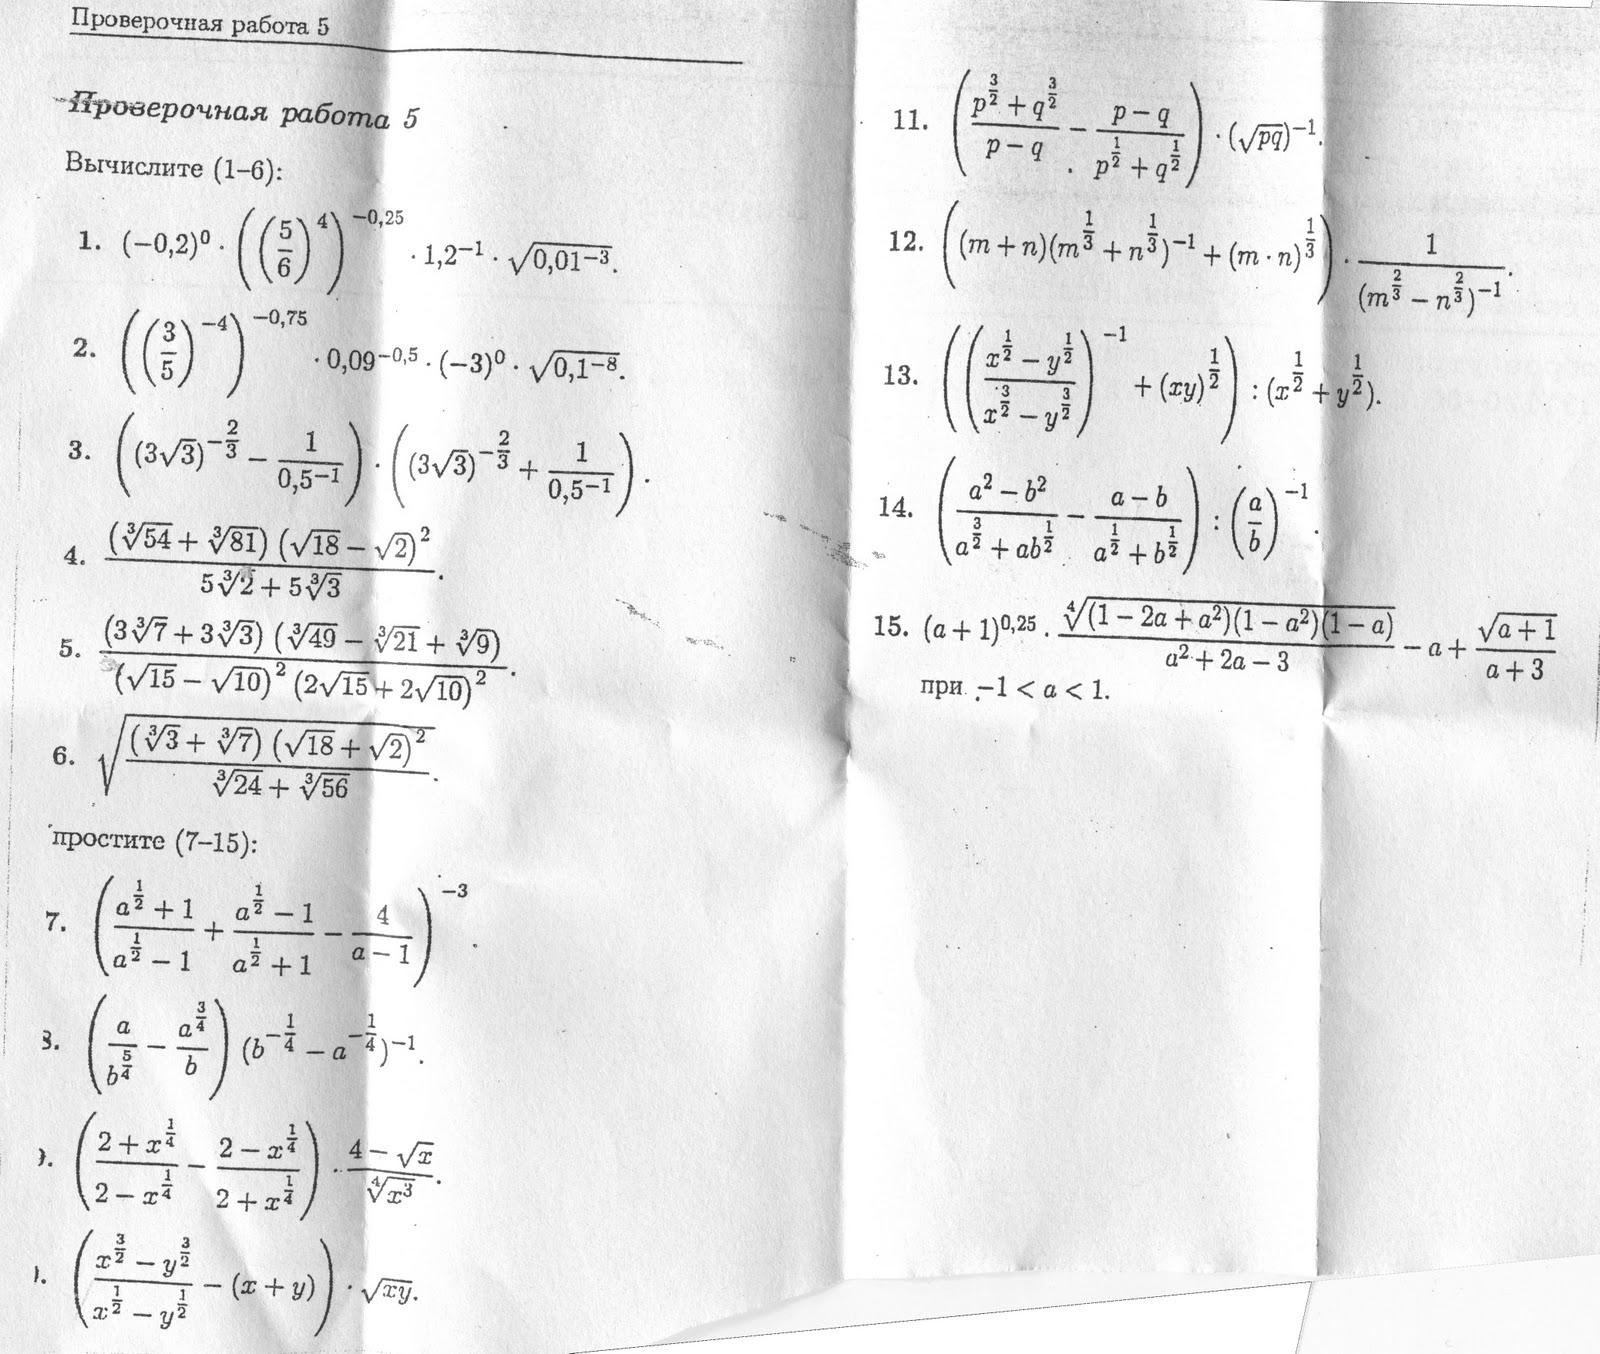 Проверочная работа 5
Проверочная работа 5
Вычислите (1–6):
1. (−0,2)^0 · ((5/6)^4)^{−0,25} · 1,2^{−1} · √(0,01^{−3}).
2. ((3/5)^{−4})^{−0,75} · 0,09^{−0,5} · (−3)^0 · √(0,1^{−8}).
3. ((3√3)^{−2/3} − 1/0,5^{−1}) · ((3√3)^{−2/3} + 1/0,5^{−1}).
4. (∛54 + ∛81)(√18 − √2)^2 / (5∛2 + 5∛3).
5. (3∛7 + 3∛3)(∛49 − ∛21 + ∛9) / ((√15 − √10)^2 (2√15 + 2√10)^2).
6. √((∛3 + ∛7)(√18 + √2)^2 / (∛24 + ∛56)).
простите (7–15):
7. ((a^{1/2} + 1)/(a^{1/2} − 1) + (a^{1/2} − 1)/(a^{1/2} + 1) − 4/(a − 1))^{−3}.
8. (a/b^{5/4} − a^{3/4}/b)(b^{−1/4} − a^{−1/4})^{−1}.
((2 + x^{1/4})/(2 − x^{1/4}) − (2 − x^{1/4})/(2 + x^{1/4})) · (4 − √x)/∜(x^3).
((x^{3/2} − y^{3/2})/(x^{1/2} − y^{1/2}) − (x + y)) · √(xy).
11. ((p^{3/2} + q^{3/2})/(p − q) − (p − q)/(p^{1/2} + q^{1/2})) · (√(pq))^{−1}.
12. ((m + n)(m^{1/3} + n^{1/3})^{−1} + (m · n)^{1/3}) · 1/(m^{2/3} − n^{2/3})^{−1}.
13. (((x^{1/2} − y^{1/2})/(x^{3/2} − y^{3/2}))^{−1} + (xy)^{1/2}) : (x^{1/2} + y^{1/2}).
14. ((a^2 − b^2)/(a^{3/2} + ab^{1/2}) − (a − b)/(a^{1/2} + b^{1/2})) : (a/b)^{−1}.
15. (a + 1)^{0,25} · ∜((1 − 2a + a^2)(1 − a^2)(1 − a))/(a^2 + 2a − 3) − a + √(a + 1)/(a + 3)
при −1 < a < 1.